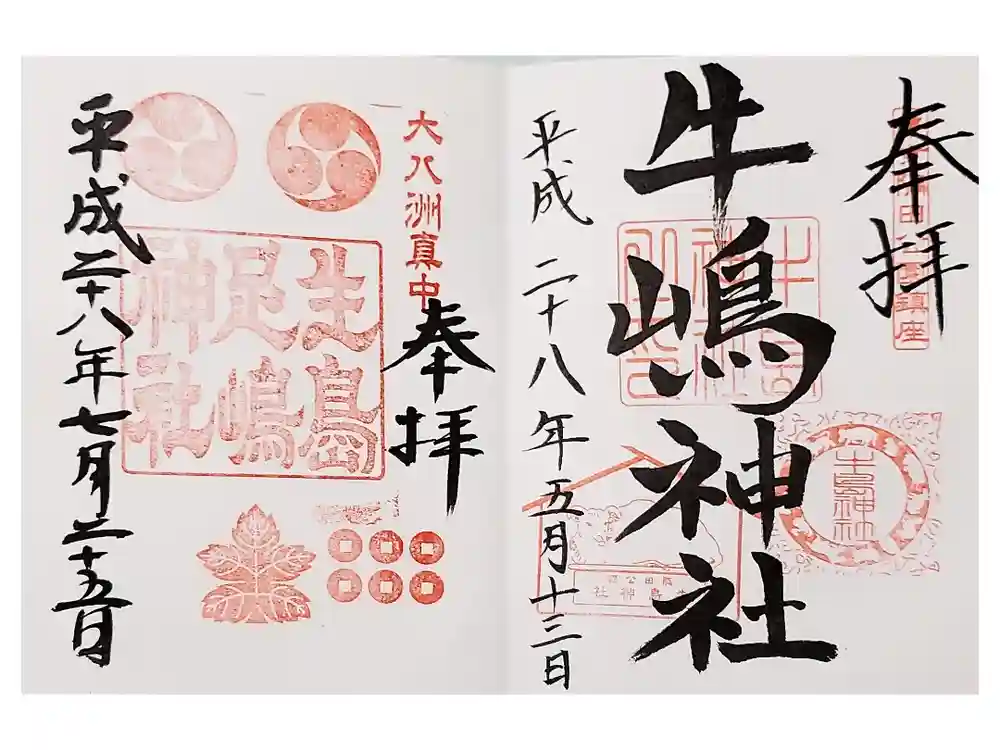 奉拝
牛嶋神社
平成二十八年五月十三日
鎮座
牛島神社
隅田公園
牛島神社
大八洲真中
奉拝
生島
足嶋
神社
平成二十八年七月二十五日